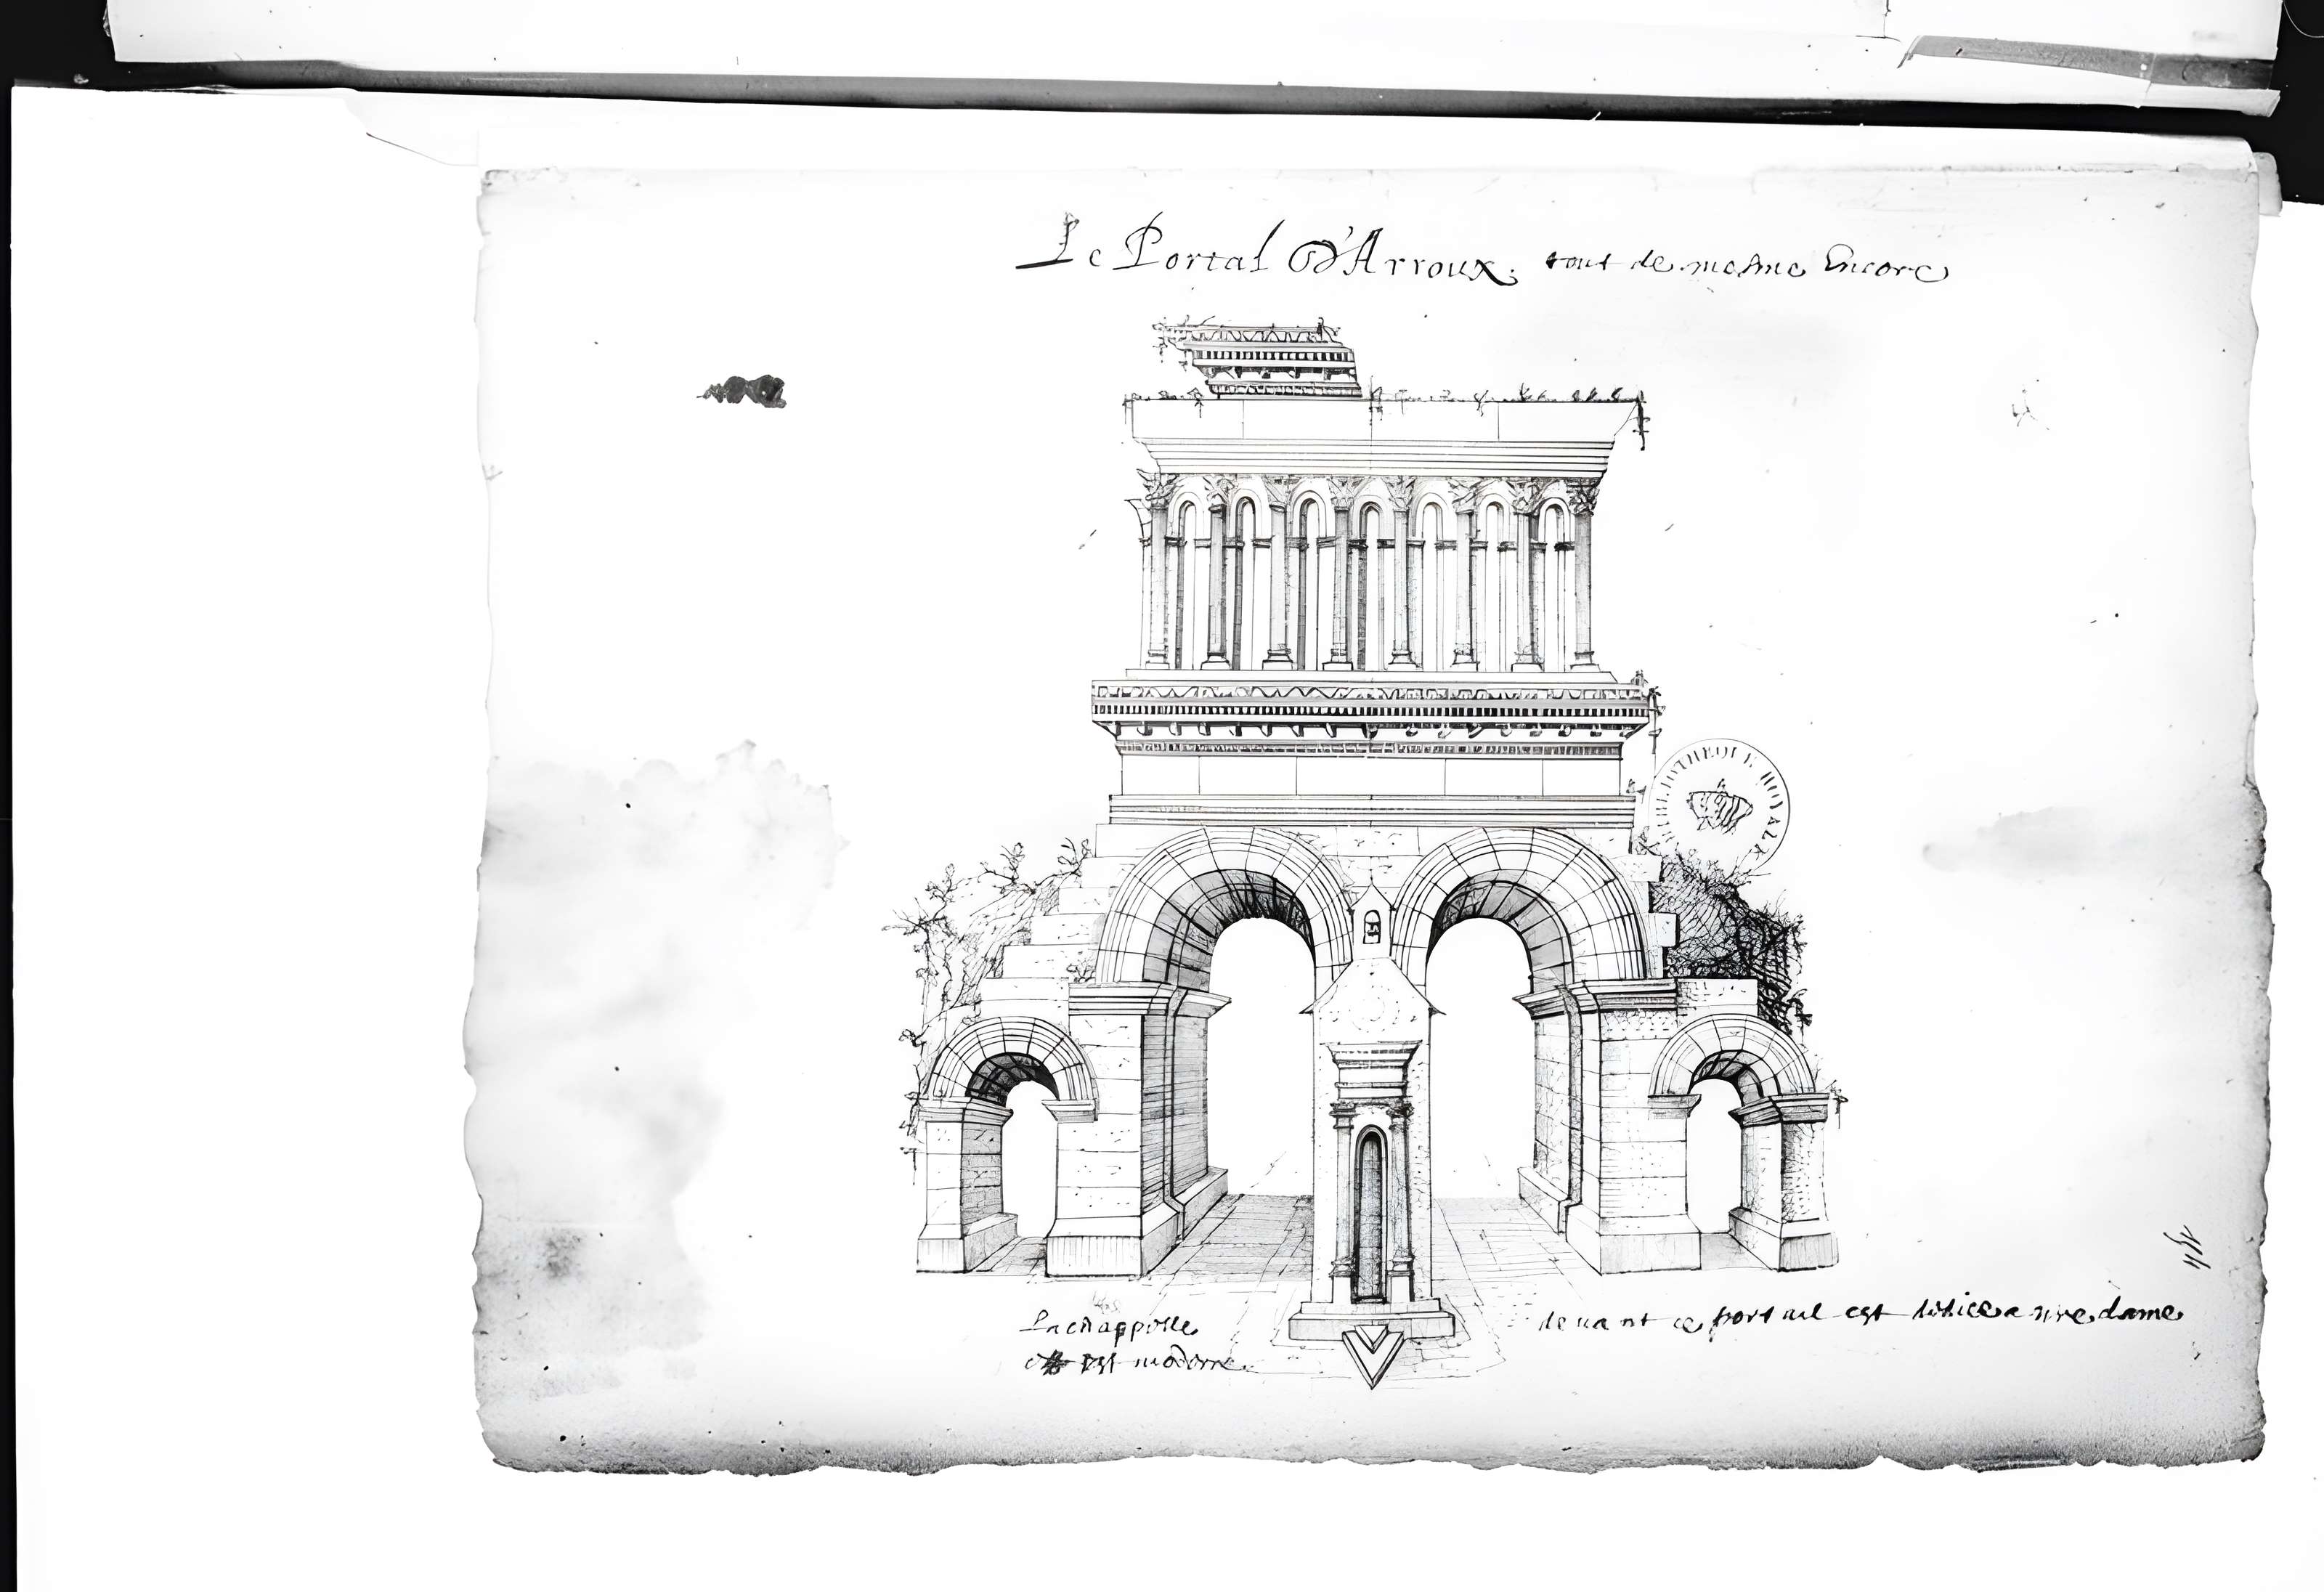 Le Portal d'Arroux. tout de mesme Encore
BIBLIOTHEQUE ROYALE
La chappelle devant ce portail est dédiée a nre dame
est moderne